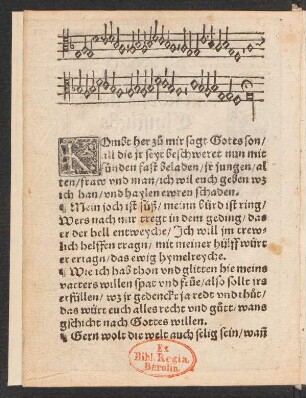 KOmbt her zů mir sagt Gotes son/
all die jr seyt beschweret nun mit
sünden fast beladen/jr jungen/al
ten/fraw vnd man/ich wil euch geben wz
ich han/vnd haylen ewren schaden.
¶ Mein joch ist süß/meinn bürd ist ring/
Wers nach mir tregt in dem geding/das
er der hell entweyche/Ich will im trew-
lich helffen tragn/mit meiner hülff würt
er eriagn/das ewig hymelreyche.
¶ Wie ich hab thon vnd glitten hie meins
vatters willen spat vnd frůe/also sollt irs
erfüllen/wz jr gedenckt ja redt vnd thůt/
das würt euch alles recht vnd gůtt/wans
gschicht nach Gottes willen.
¶ Gern wolt die welt auch selig sein/wañ
Ex
Bibl. Regia
Berolin.